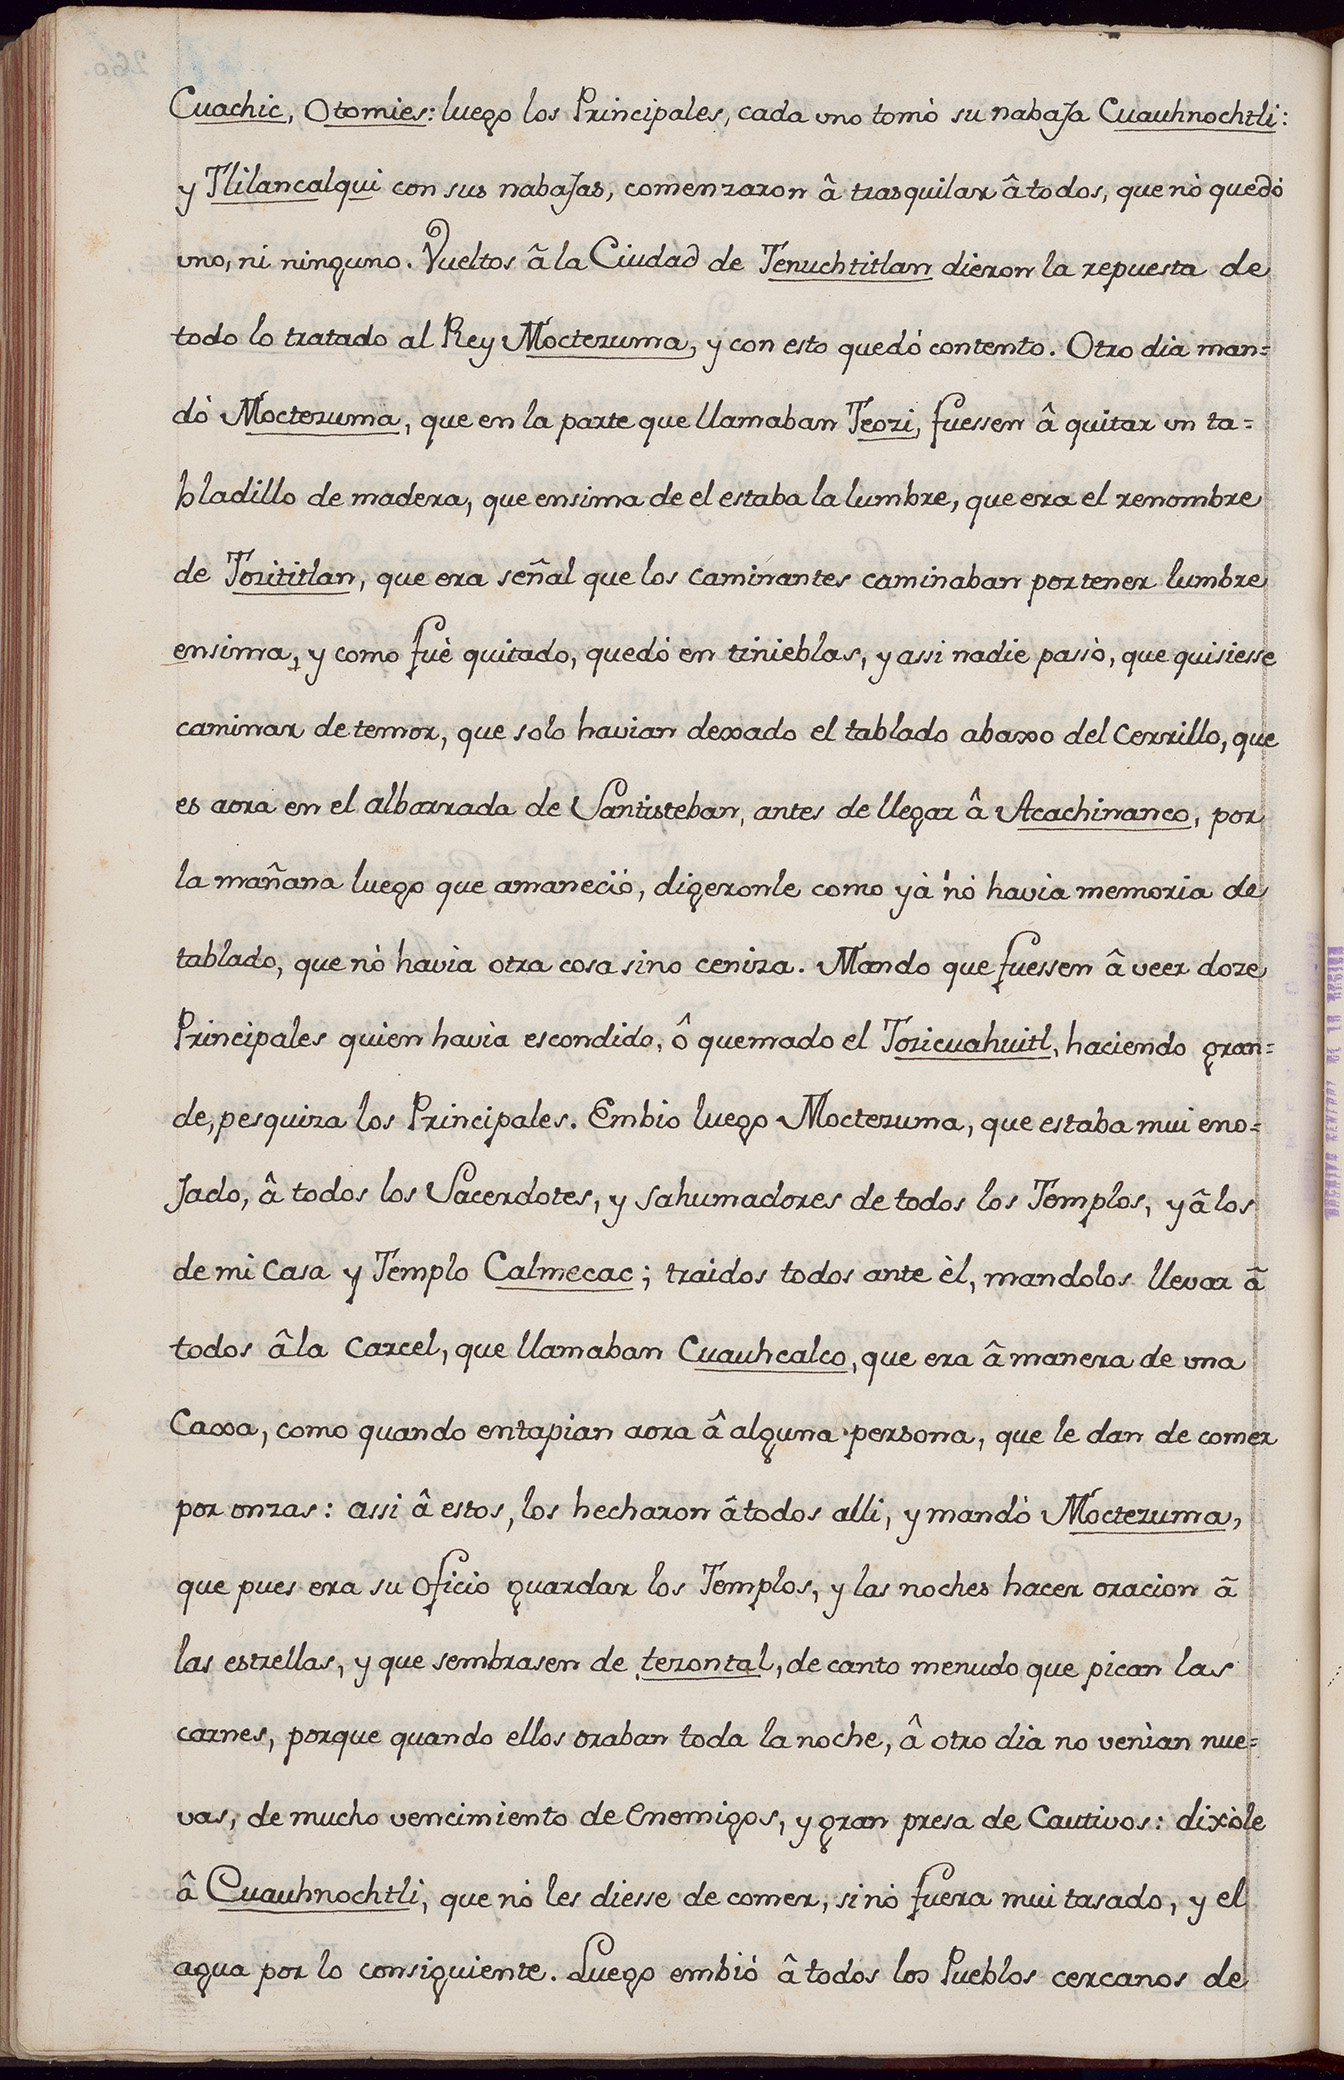 Cuachic, Otomies: luego los Principales, cada uno tomò su nabaJa Cuauhnochtli:
y Tlilancalqui con sus nabaJas, comenzaron â trasquilar â todos, que nò quedó
uno, ni ninguno. Vueltos â la Ciudad de Tenuchtitlan dieron la repuesta de
todo lo tratado al Rey Moctezuma, y con esto quedó contento. Otro dia man=
dò Moctezuma, que en la parte que llamaban Teozi, fuessen â quitar un ta=
bladillo de madera, que ensima de el estaba la lumbre, que era el renombre
de Tozititlan, que era señal que los caminantes caminaban por tener lumbre
ensima, y como fuè quitado, quedó en tinieblas, y assi nadie passò, que quisiesse
caminar de temor, que solo havian dexado el tablado abaxo del Cerrillo, que
es aora en el albarrada de Santisteban, antes de llegar â Acachinanco, por
la mañana luego que amaneció, digeronle como yà nò havia memoria de
tablado, que nò havia otra cosa sino ceniza. Mando que fuessen â veer doze
Principales quien havia escondido, ô quemado el Tozicuahuitl, haciendo gran=
de, pesquiza los Principales. Embio luego Moctezuma, que estaba mui eno=
Jado, â todos los Sacerdotes, y Sahumadores de todos los Templos, y â los
de mi Casa y Templo Calmecac; traidos todos ante èl, mandolos llevar â
todos â la Carcel, que llamaban Cuauhcalco, que era â manera de una
Caxa, como quando entapian aora â alguna persona, que le dan de comer
por onzas: assi â estos, los hecharon â todos alli, y mandò Moctezuma,
que pues era su Oficio guardar los Templos, y las noches hacer oracion â
las estrellas, y que sembrasen de tezontal, de canto menudo que pican las
carnes, porque quando ellos oraban toda la noche, â otro dia no venian nue=
vas, de mucho vencimiento de Enemigos, y gran presa de Cautivos: dixole
â Cuauhnochtli, que nò les diesse de comer, sinò fuera mui tasado, y el
agua por lo consiguiente. Luego embió â todos los Pueblos cercanos de